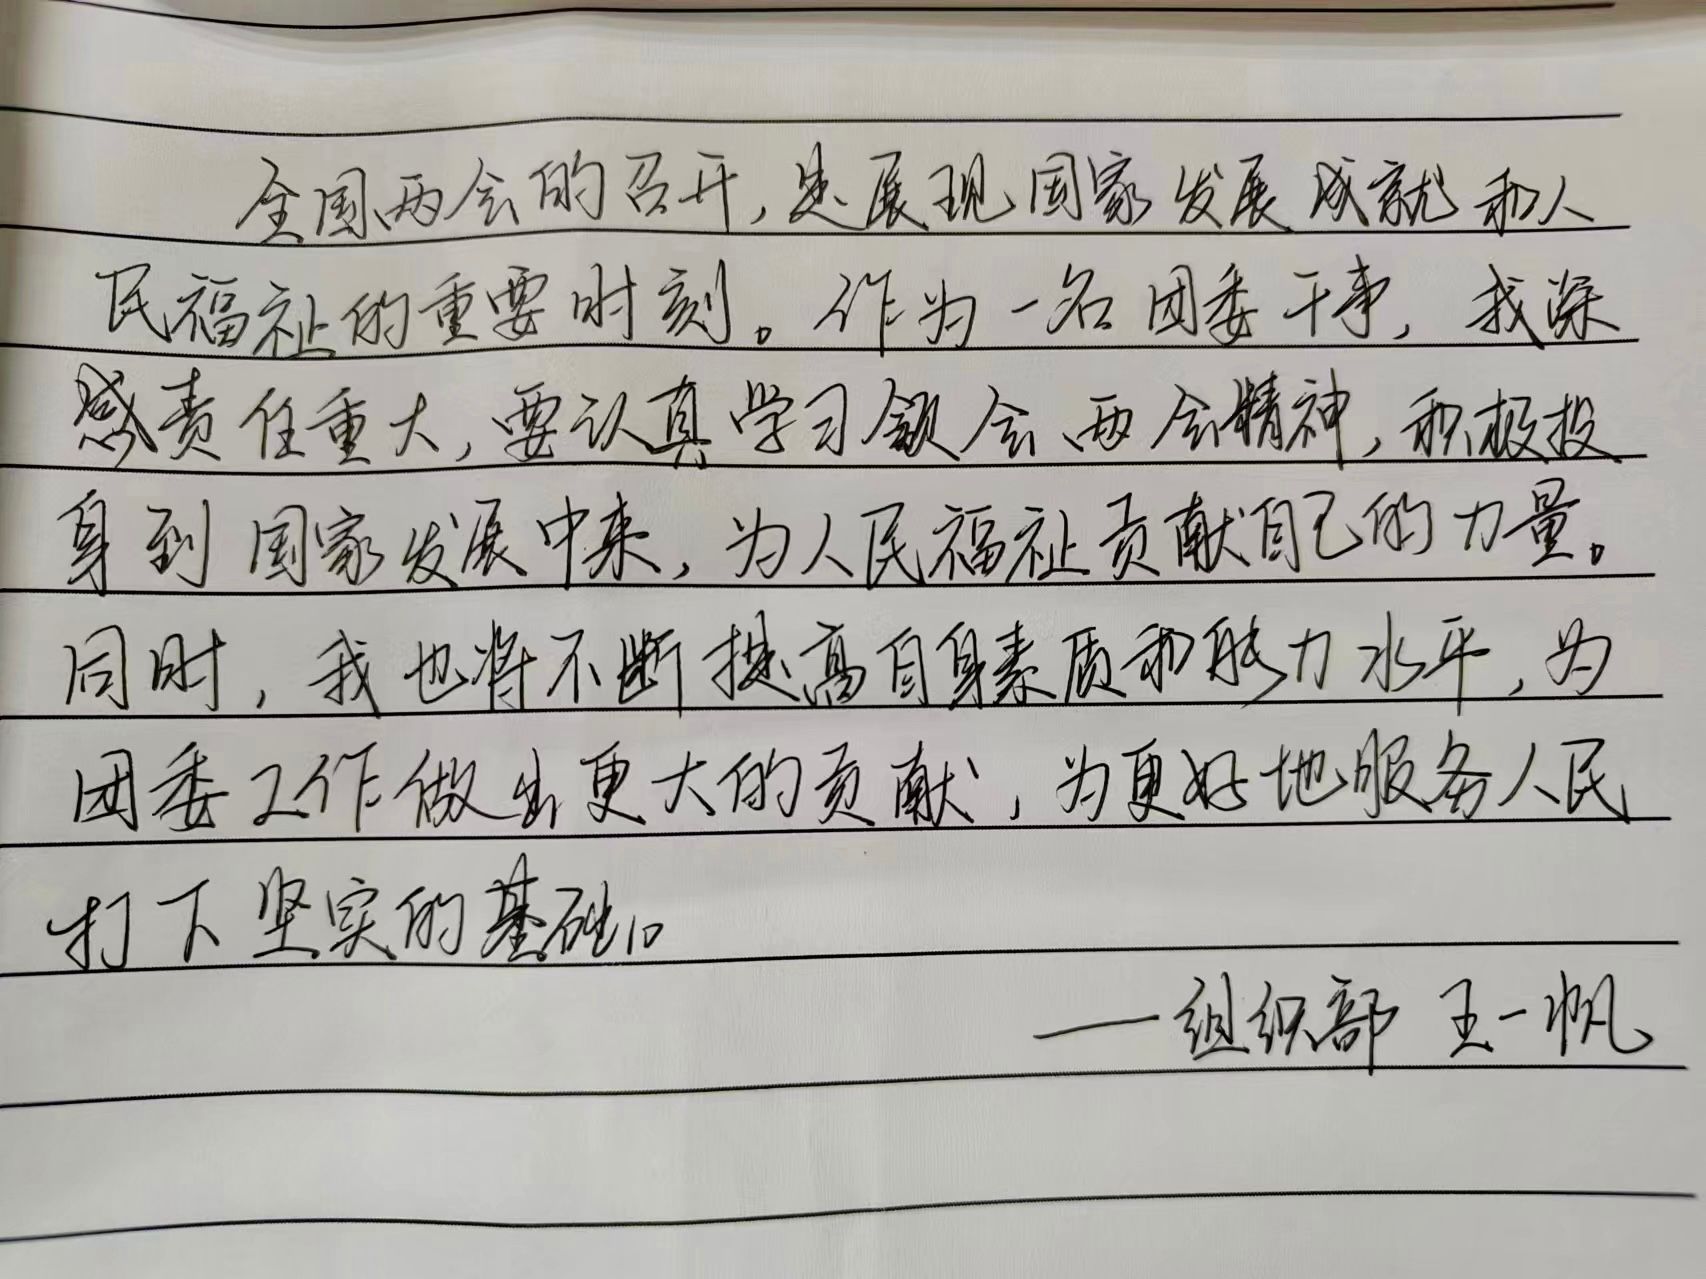 全国两会的召开，是展现国家发展成就和人
民福祉的重要时刻。作为一名团委干事，我深
感责任重大，要认真学习领会两会精神，积极投
身到国家发展中来，为人民福祉贡献自己的力量。
同时，我也将不断提高自身素质和能力水平，为
团委工作做出更大的贡献，为更好地服务人民
打下坚实的基础。
——组织部 王一帆